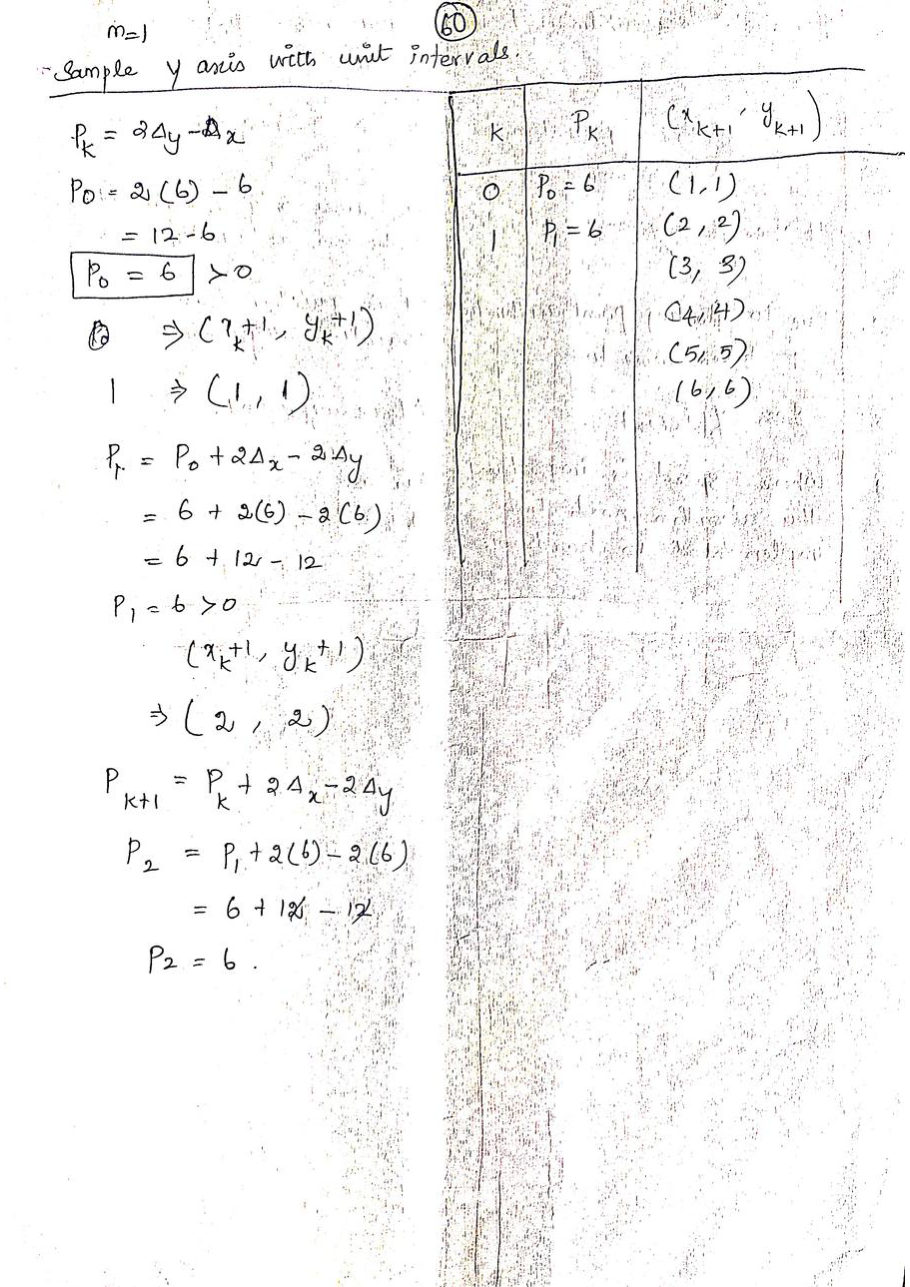 60
m=1
Sample y axis with unit intervals.
P_k = 2Δy - Δx
P0 = 2(6) - 6
= 12 - 6
P0 = 6 > 0
⇒ (x_k+1, y_k+1)
1 ⇒ (1, 1)
= P0 + 2Δx - 2Δy
= 6 + 2(6) - 2(6)
= 6 + 12 - 12
P1 = 6 > 0
(x_k+1, y_k+1)
⇒ (2, 2)
P_k+1 = P_k + 2Δx - 2Δy
P2 = P1 + 2(6) - 2(6)
= 6 + 12 - 12
P2 = 6.
k P_k (x_k+1, y_k+1)
0 P0 = 6 (1, 1)
1 P1 = 6 (2, 2)
(3, 3)
(4, 4)
(5, 5)
(6, 6)